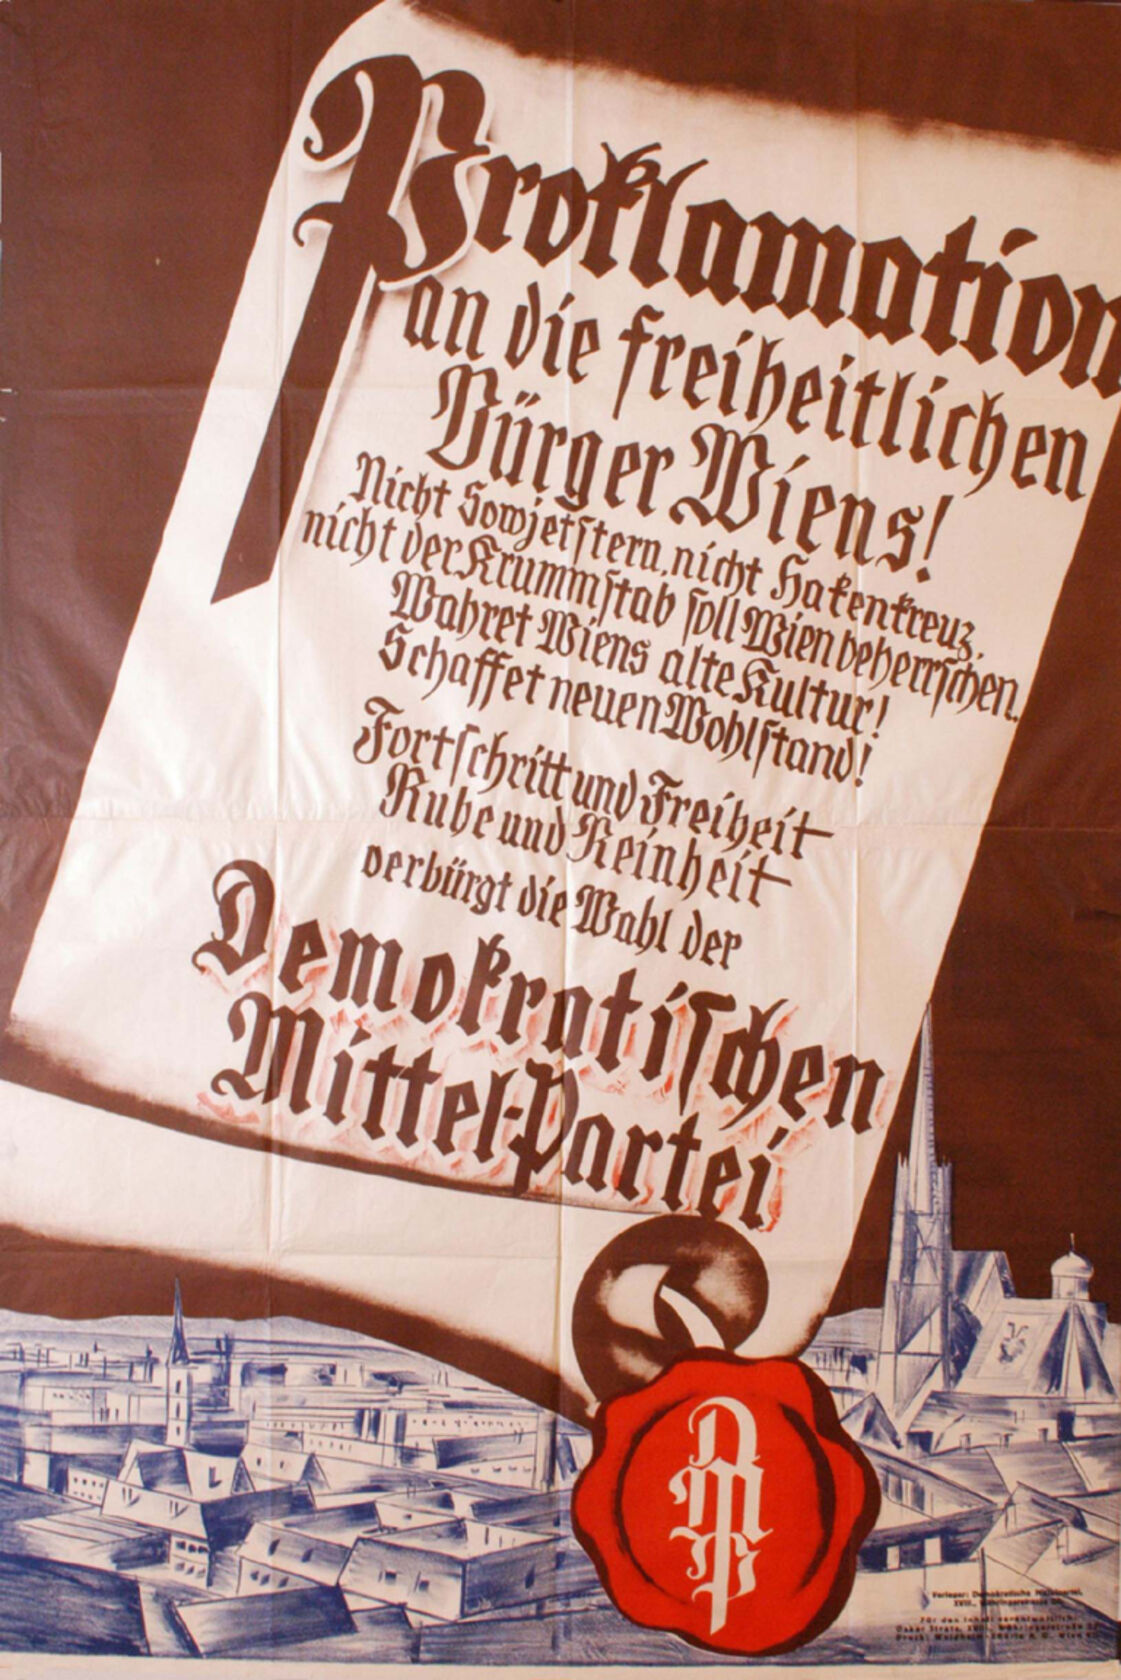 Proklamation
an die freiheitlichen
Bürger Wiens!
Nicht Sowjetstern, nicht Hakenkreuz,
nicht der Krummstab soll Wien beherrschen.
Wahret Wiens alte Kultur!
Schaffet neuen Wohlstand!
Fortschritt und Freiheit
Ruhe und Reinheit
verbürgt die Wahl der
Demokratischen
Mittel-Partei
DMP
Verleger: Demokratische Mittelpartei,
XVIII., Währingerstraße
Für den Inhalt verantwortlich:
XVIII., Währingerstraße
Druck: Waldheim-Eberle A. G. Wien